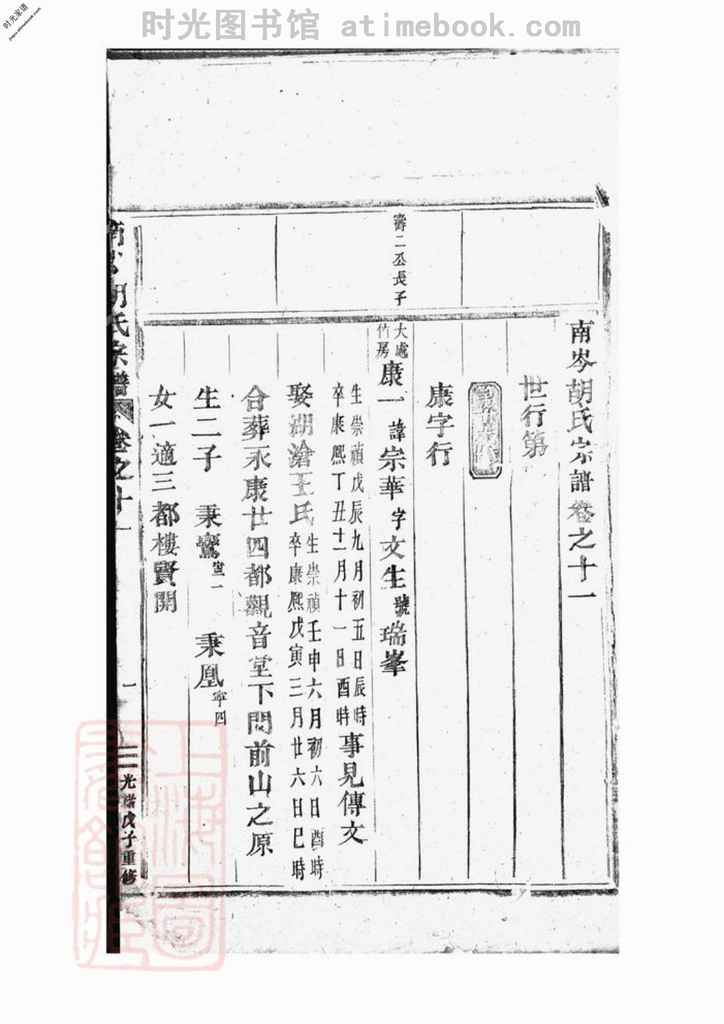 时光图书馆 atimebook.com
时光家谱
南岑胡氏宗譜卷之十一
世行第
康字行
壽二公長子
大處竹房
康一 諱宗華 字文生 號瑞峯
生崇禎戊辰九月初五日辰時
卒康熙丁丑十一月十一日酉時
事見傳文
娶湖滄王氏
生崇禎壬申六月初六日酉時
卒康熙戊寅三月廿六日巳時
合葬永康廿四都觀音堂下問前山之原
生二子 秉鸞 秉凰寧四
女一適三都樓賢開
南岑胡氏宗譜 卷之十一
一
光緒戊子重修